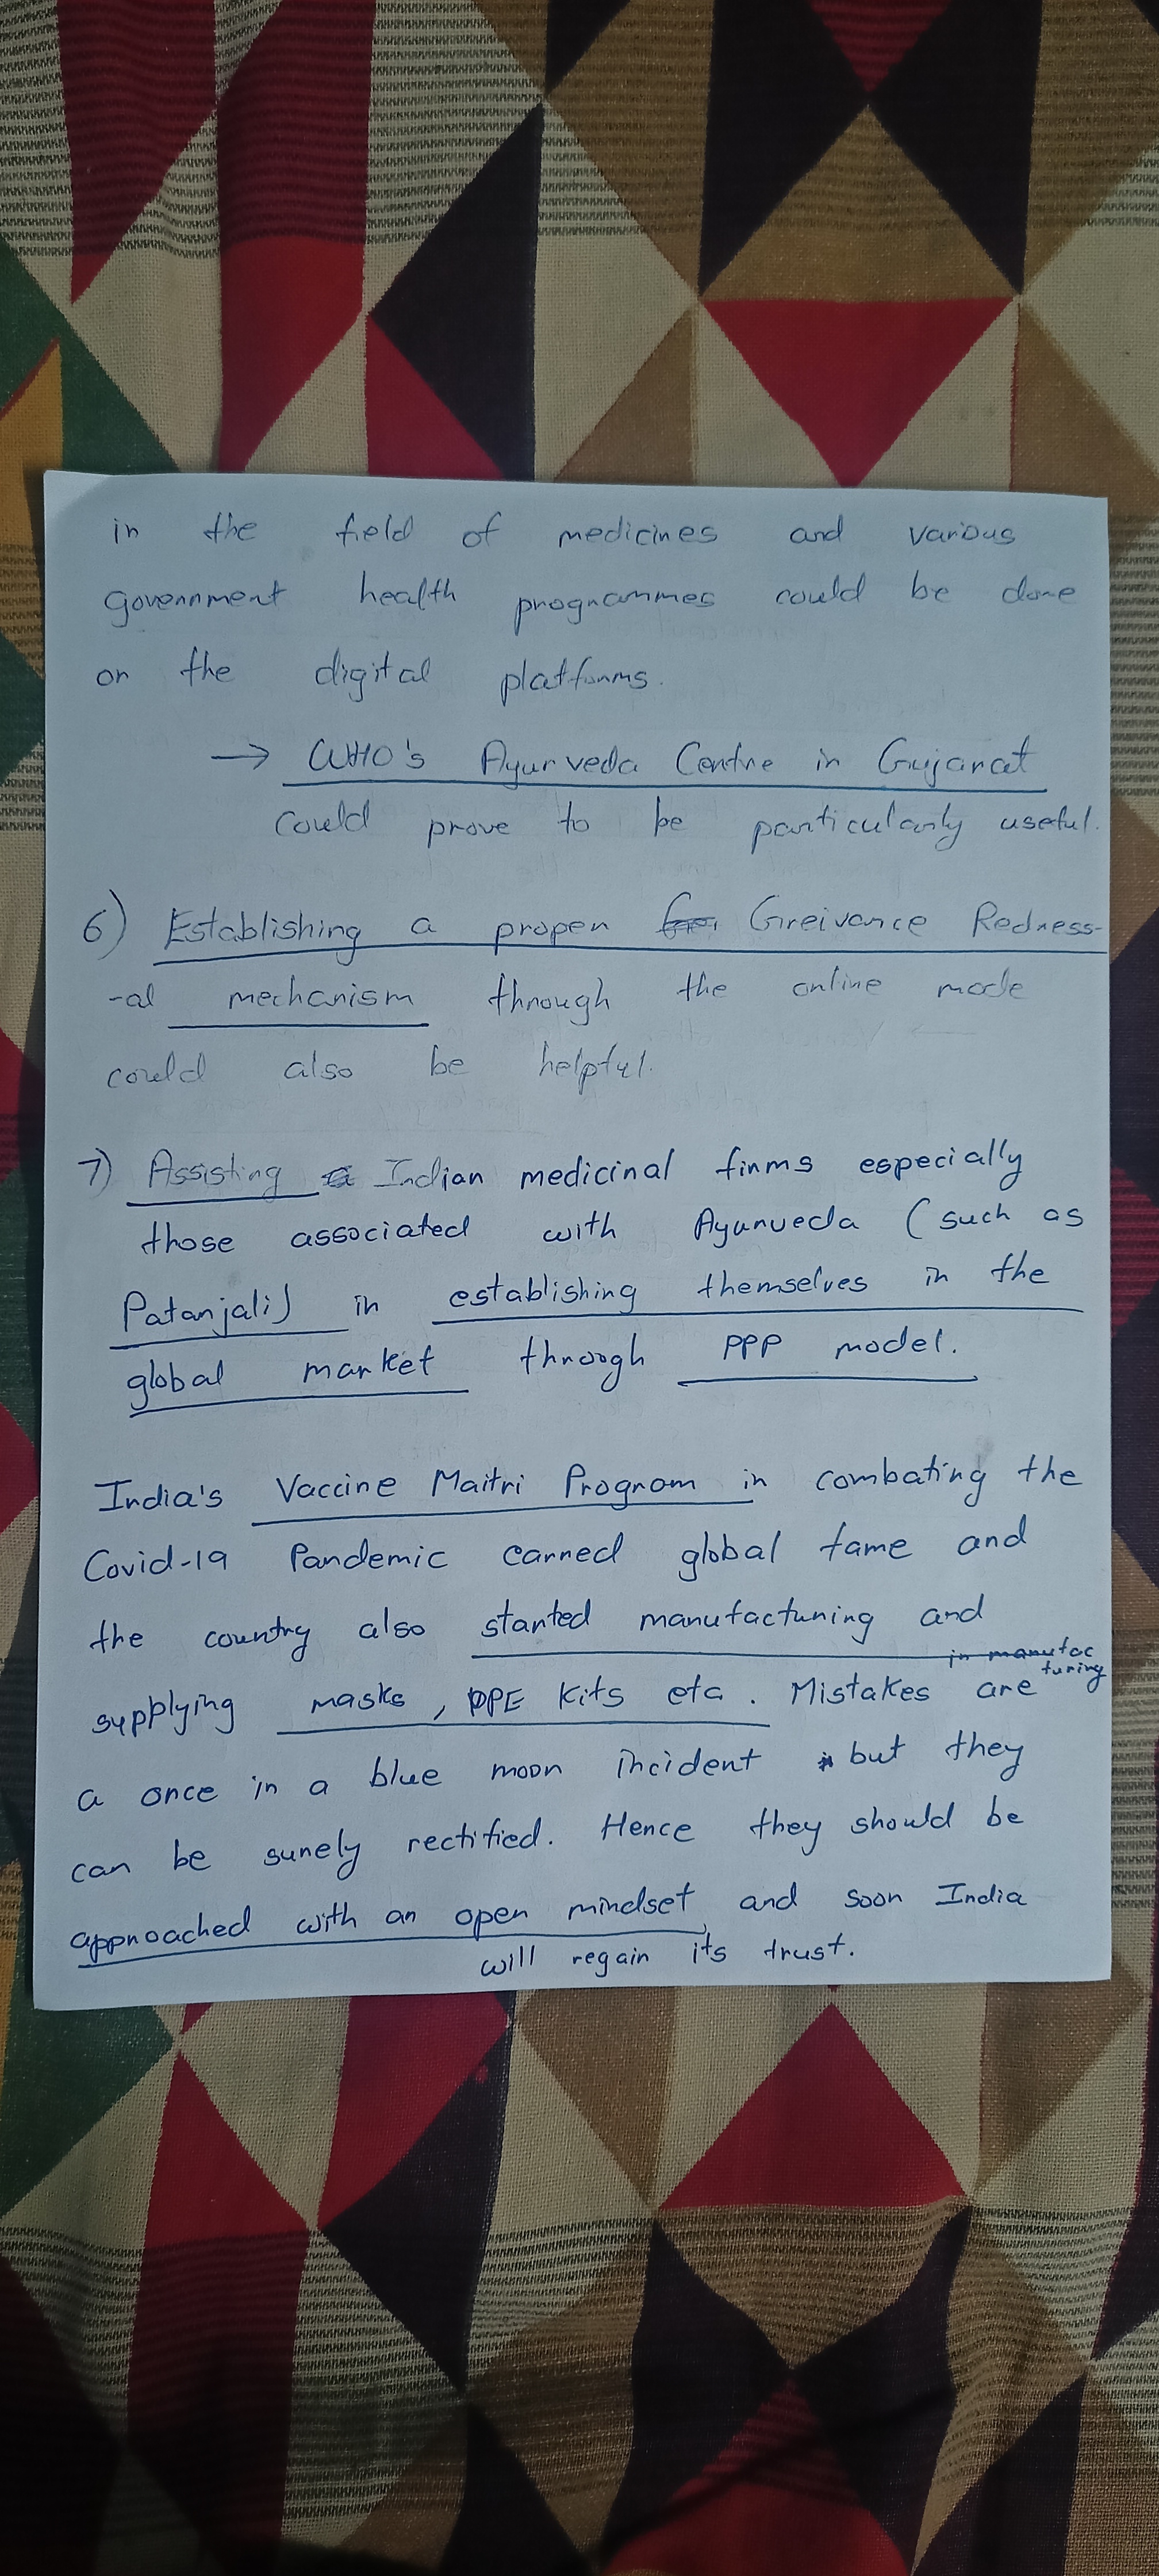 in the field of medicines and various
government health programmes could be done
on the digital platforms.
→ WHO's Ayurveda Centre in Gujarat
could prove to be particularly useful.
6) Establishing a proper Greivance Redress-
-al mechanism through the online mode
could also be helpful.
7) Assisting Indian medicinal firms especially
those associated with Ayurveda (such as
Patanjali) in establishing themselves in the
global market through PPP model.
India's Vaccine Maitri Program in combating the
Covid-19 Pandemic earned global fame and
the country also started manufacturing and
in manufac
turing
supplying masks, PPE Kits etc. Mistakes are
a once in a blue moon incident but they
can be surely rectified. Hence they should be
approached with an open mindset and soon India
will regain its trust.